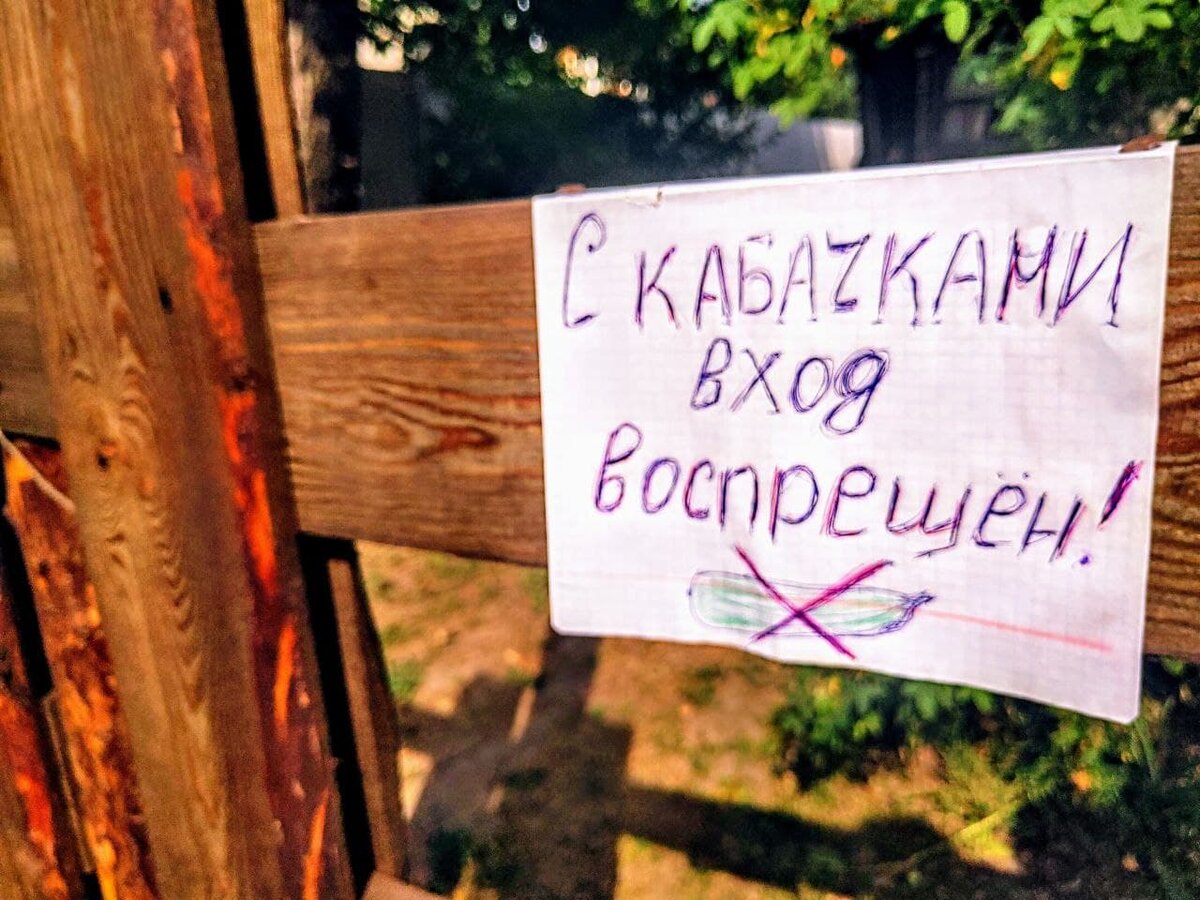 С КАБАЧКАМИ
вход
воспрещён!